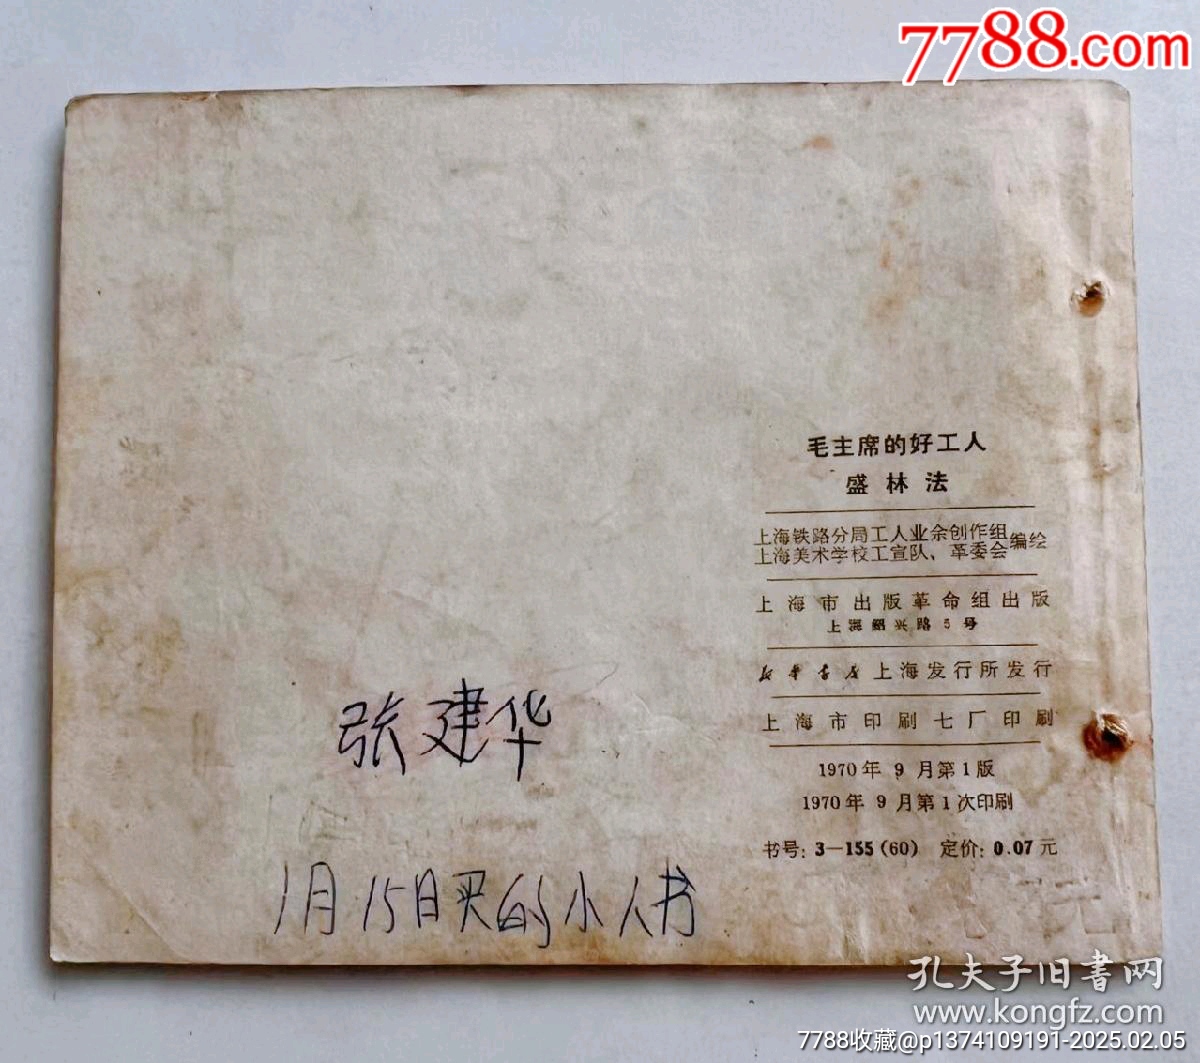 7788.com
毛主席的好工人
盛林法
上海铁路分局工人业余创作组
上海美术学校工宣队、革委会编绘
上海市出版革命组出版
上海绍兴路5号
新华书店上海发行所发行
上海市印刷七厂印刷
1970年9月第1版
1970年9月第1次印刷
书号:3—155(60) 定价:0.07元
张建华
1月15日买的小人书
孔夫子旧書网
www.kongfz.com
7788收藏@p1374109191-2025.02.05